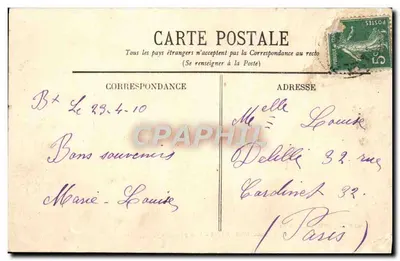 CARTE POSTALE
Tous les pays étrangers n'acceptent pas la Correspondance au recto
(Se renseigner à la Poste)
POSTES
5
CORRESPONDANCE
Bx Le 29-4-10
Bons souvenirs
Marie-Louise
CPAPHIL
ADRESSE
Melle Louise
Delille 32 rue
Cardinet 32.
(Paris)